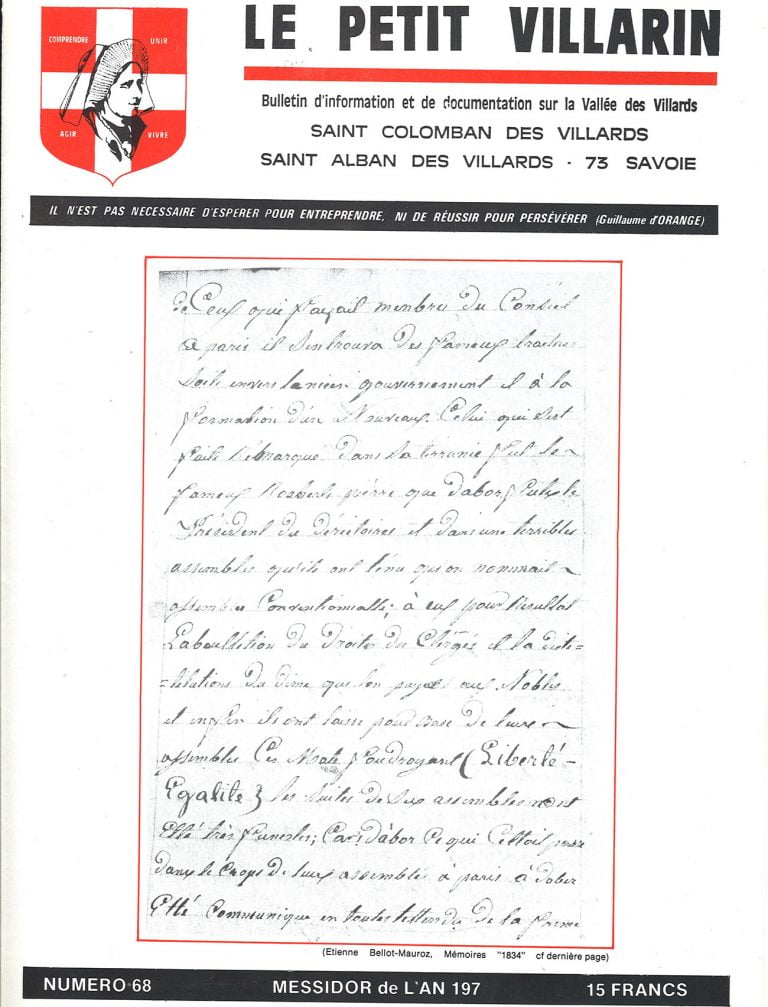 COMPRENDRE UNIR
AGIR VIVRE
LE PETIT VILLARIN
Bulletin d'information et de documentation sur la Vallée des Villards
SAINT COLOMBAN DES VILLARDS
SAINT ALBAN DES VILLARDS - 73 SAVOIE
IL N'EST PAS NECESSAIRE D'ESPERER POUR ENTREPRENDRE, NI DE RÉUSSIR POUR PERSÉVÉRER (Guillaume d'ORANGE)
Ceux qui membres du Conseil
a paris il Sentrouva Des fameux traitres
gouvernement il à la
formation d'un Nouveaux. Celui qui S'est
Dans la fut le
fameux pierre que Dabor
Président du et dans une terribles
assemblés qu'ils ont tenu qu'on nommait
assemblés à eus pour Résultat
Du Droits Du Clergés et la
Du dime que l'on aux Nobles
et enfin ils ont laisse pour base de leurs
assemblés Ces Mots foudroyant (Liberté -
Egalité) les Suites de assemblés
Etté très funestes; Car Dabor Ce qui
Dans le Corps De leurs assemblés à paris à
Etté Communique en toutes De la
(Etienne Bellot-Mauroz, Mémoires "1834" cf dernière page)
NUMERO 68 MESSIDOR de L'AN 197 15 FRANCS